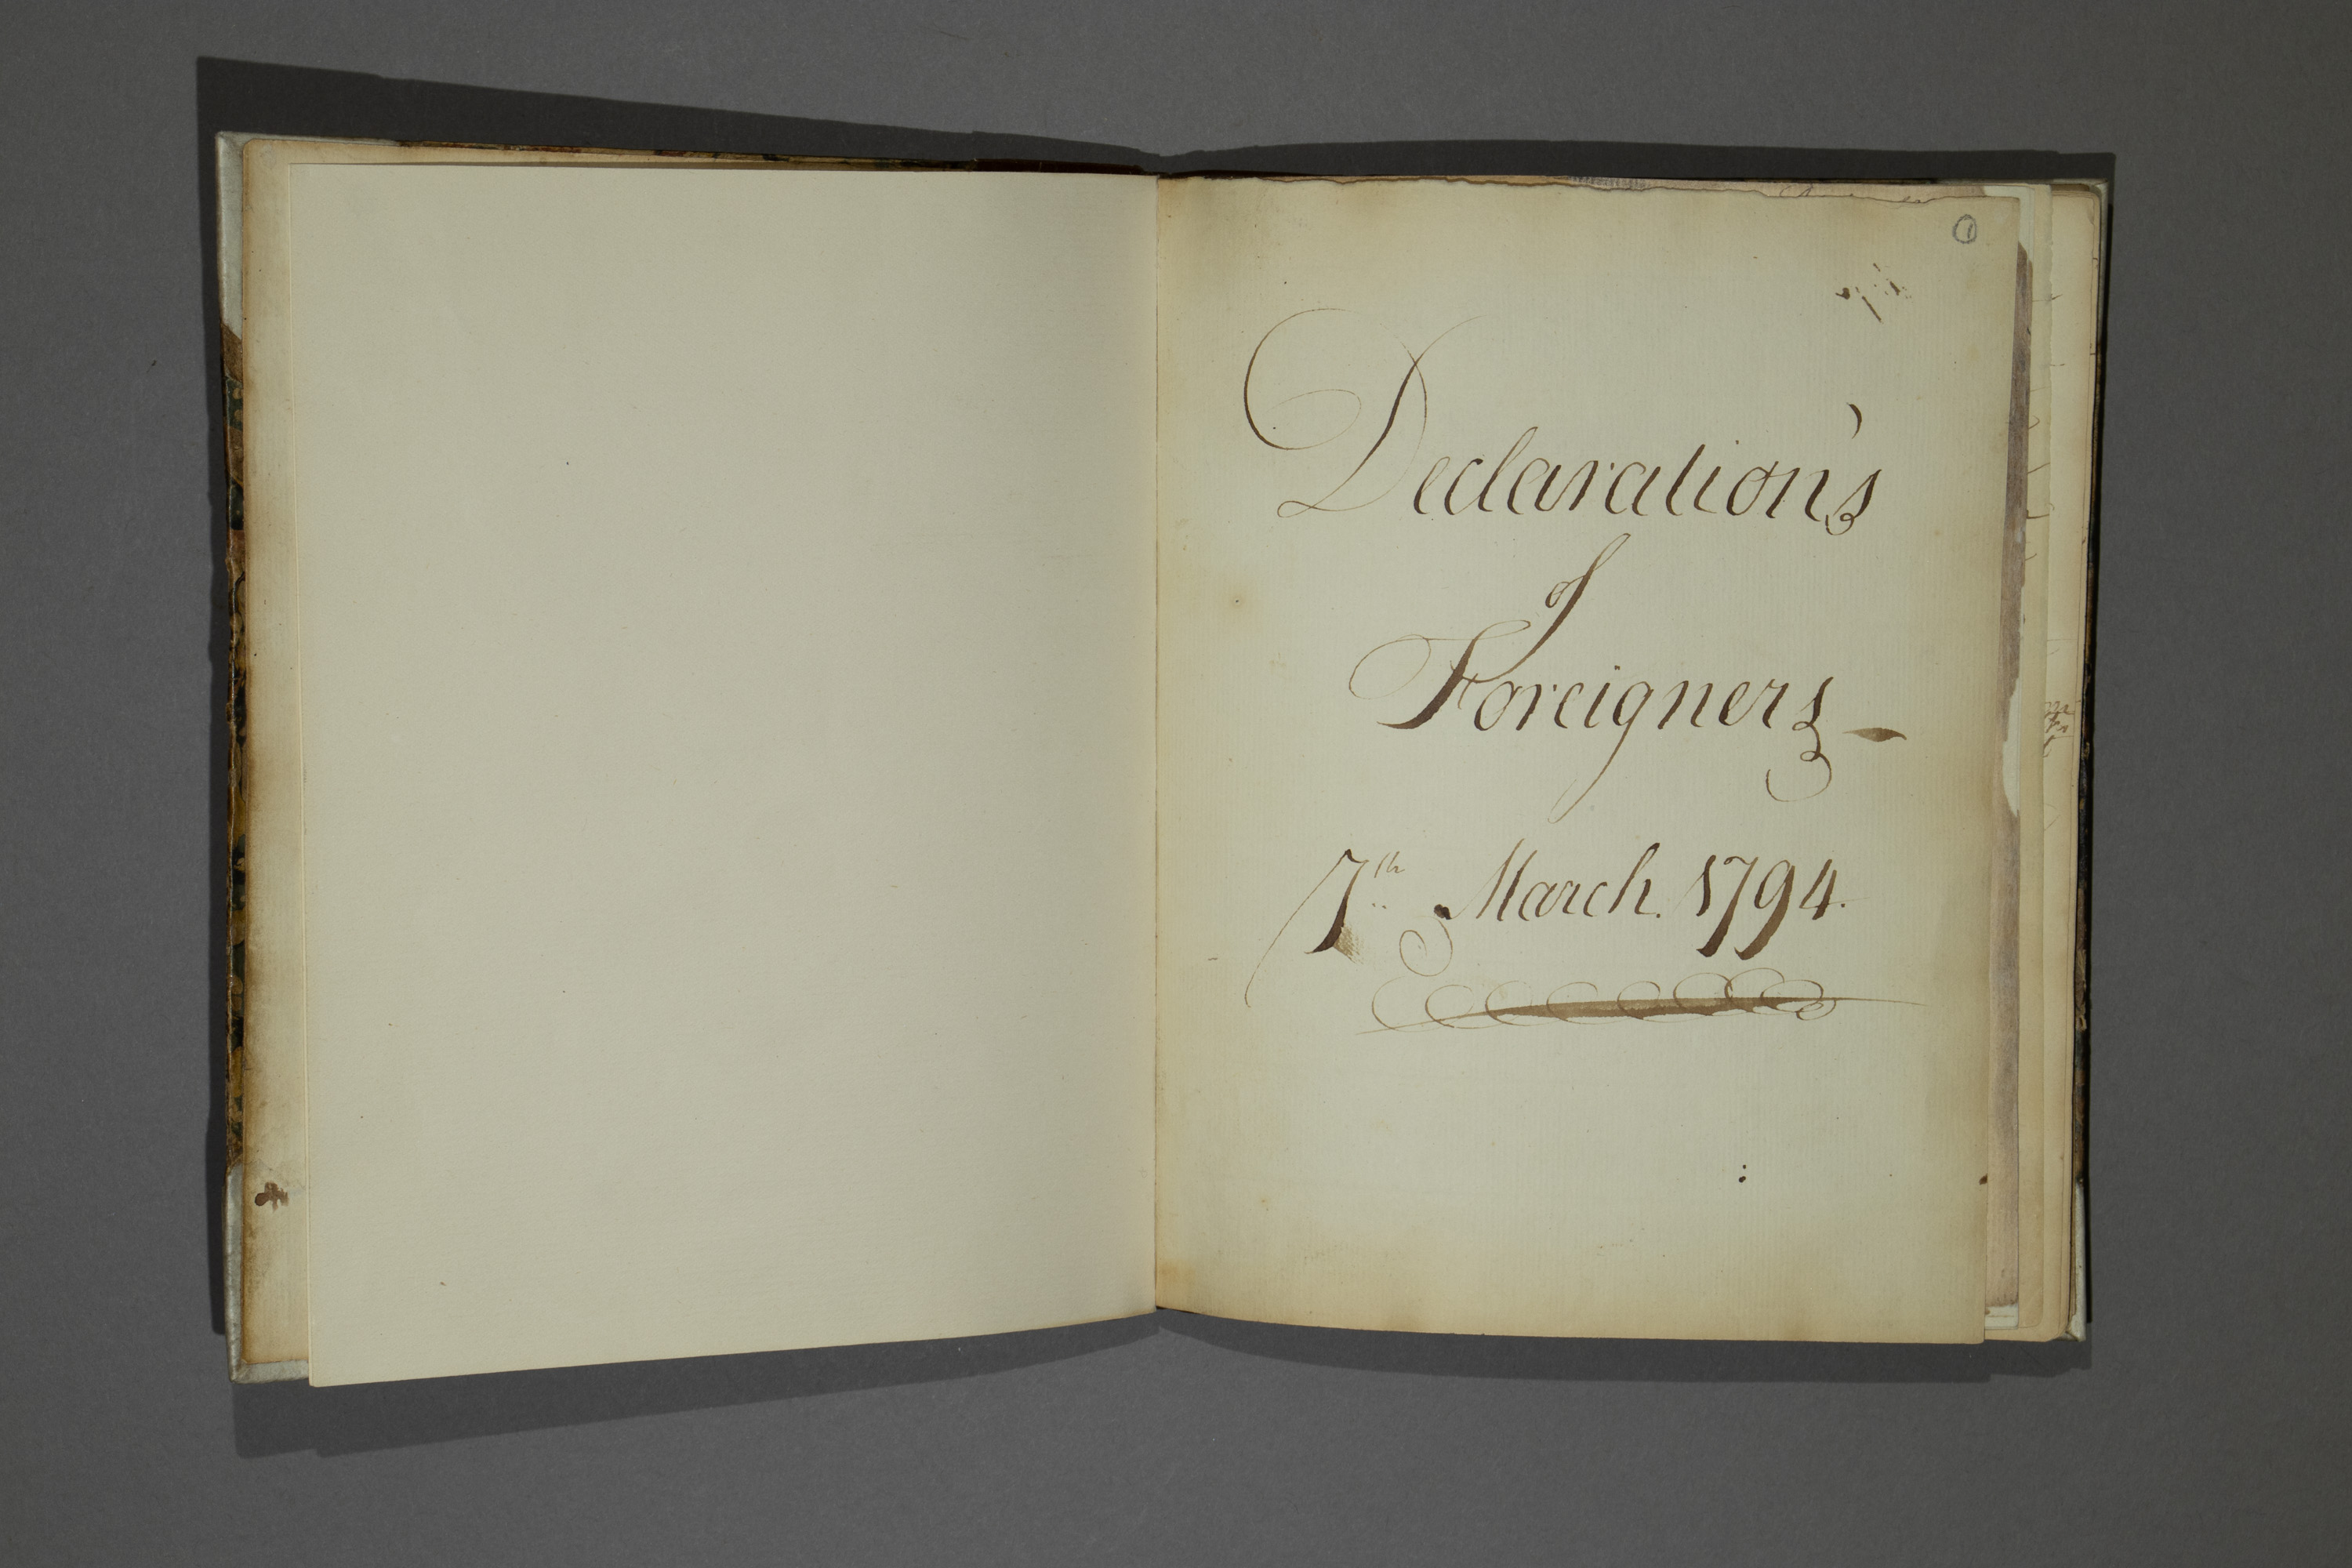 1
Declaration's
of
Foreigners
7th March. 1794.